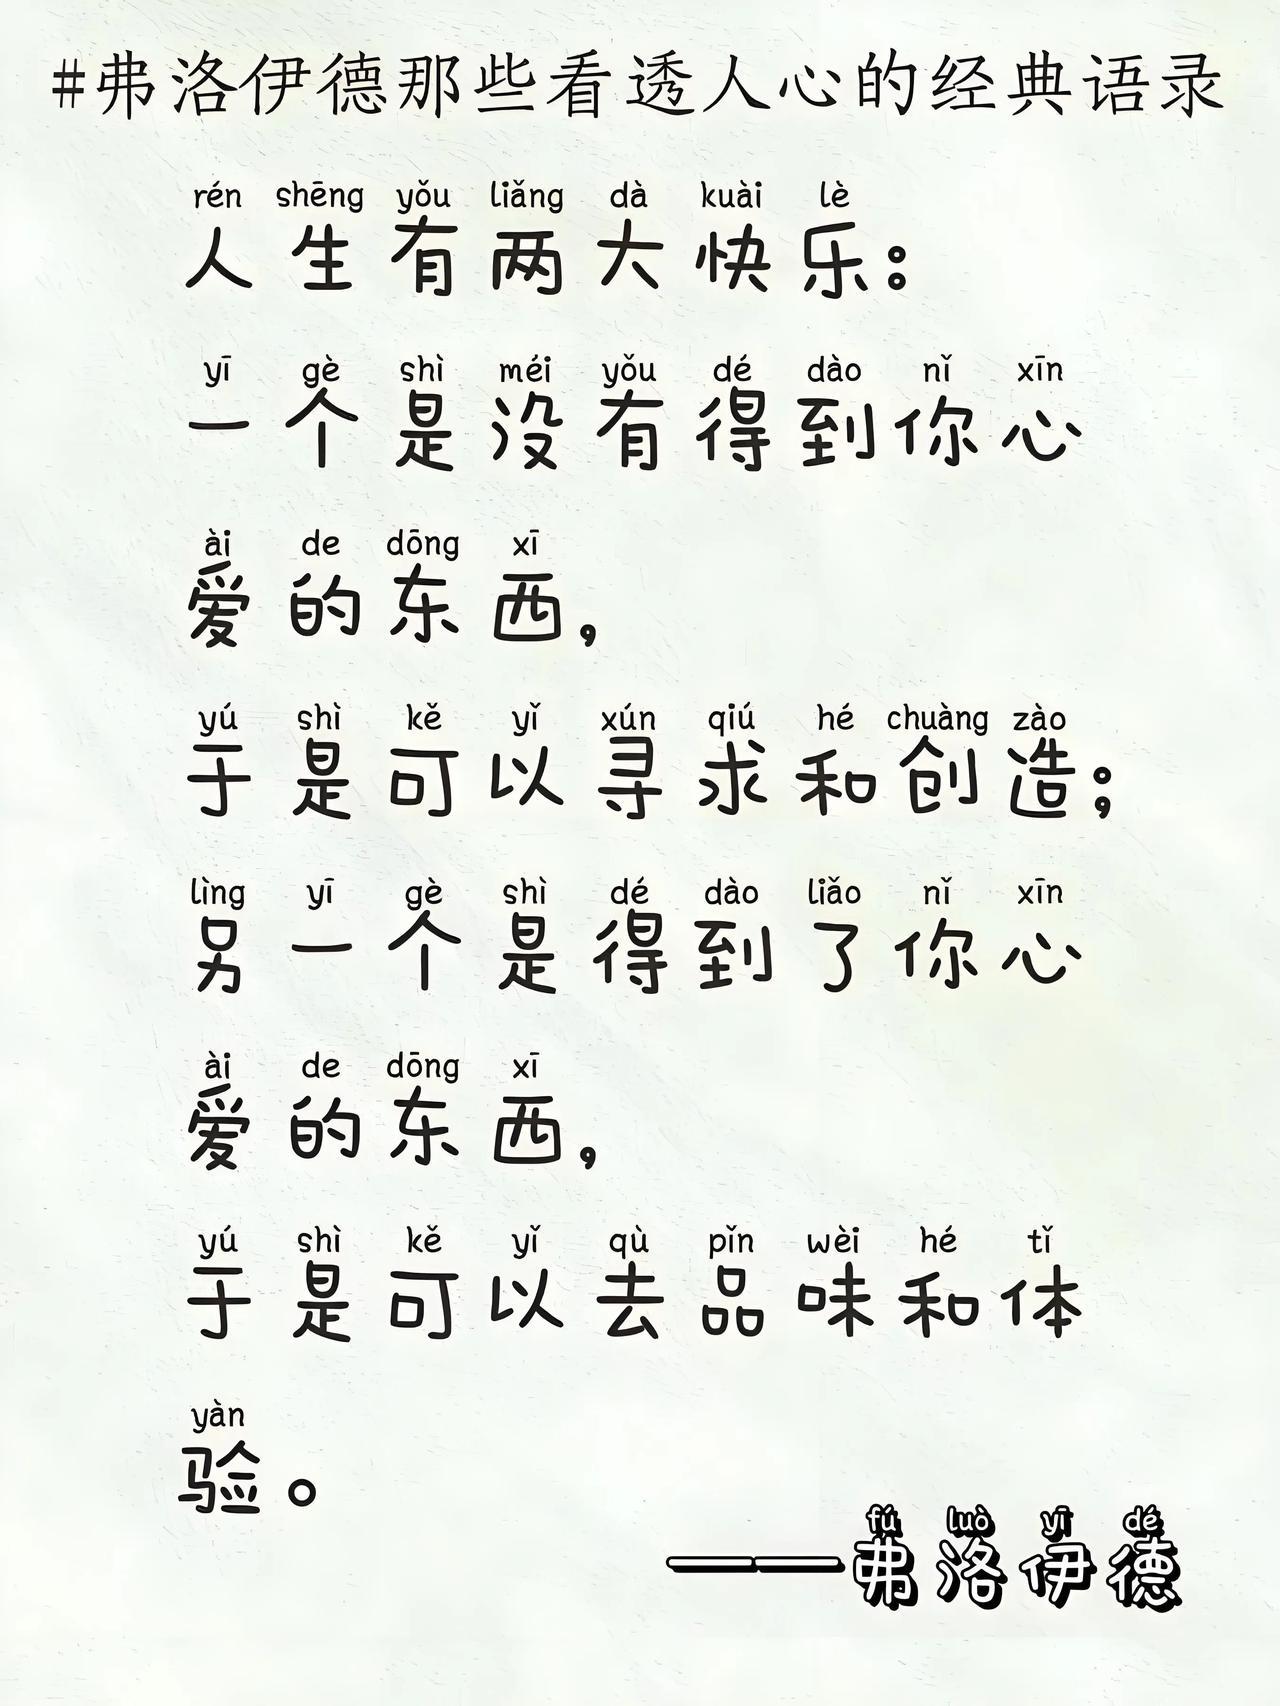 #弗洛伊德那些看透人心的经典语录
rén shēng yǒu liǎng dà kuài lè
人生有两大快乐：
yī gè shì méi yǒu dé dào nǐ xīn
一个是没有得到你心
ài de dōng xī
爱的东西，
yú shì kě yǐ xún qiú hé chuàng zào
于是可以寻求和创造；
lìng yī gè shì dé dào liǎo nǐ xīn
另一个是得到了你心
ài de dōng xī
爱的东西，
yú shì kě yǐ qù pǐn wèi hé tǐ
于是可以去品味和体
yàn
验。
fú luò yī dé
——弗洛伊德